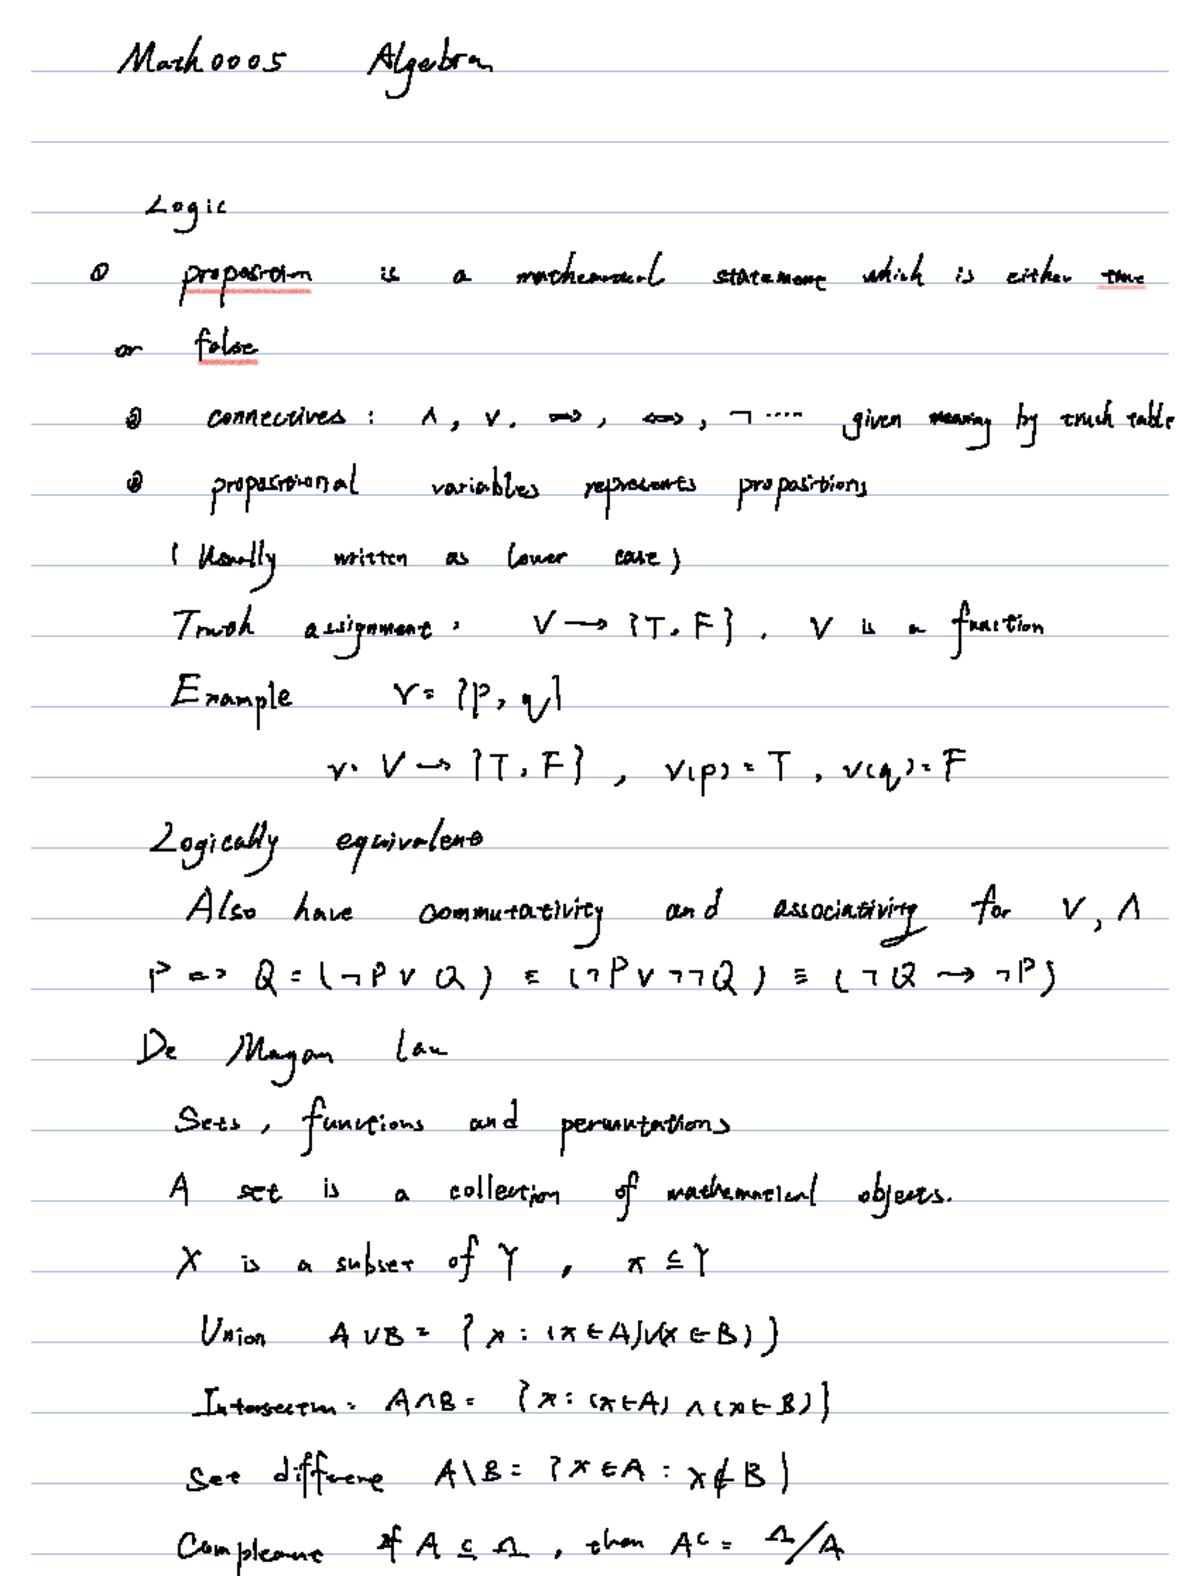 Math0005 Algebra
Logic
① proposition is a mathematical statement which is either true
or false
② connectives : ∧, ∨, ⇒, ⇔, ¬ .... given meaning by truth table
③ propositional variables represents propositions
( Usually written as lower case )
Truth assignment : V → {T, F} , V is a function
Example V = {p, q}
v: V → {T, F} , v(p) = T , v(q) = F
Logically equivalent
Also have commutativity and associativity for ∨, ∧
P => Q = (¬P ∨ Q) ≡ (¬P ∨ ¬¬Q) ≡ (¬Q → ¬P)
De Mogan Law
Sets, functions and permutations
A set is a collection of mathematical objects.
X is a subset of Y , x ⊆ Y
Union A ∪ B = {x : (x ∈ A) ∨ (x ∈ B)}
Intersection : A ∩ B = {x : (x ∈ A) ∧ (x ∈ B)}
Set differene A \ B = {x ∈ A : x ∉ B}
Complement if A ⊆ Ω , then Aᶜ = Ω/A